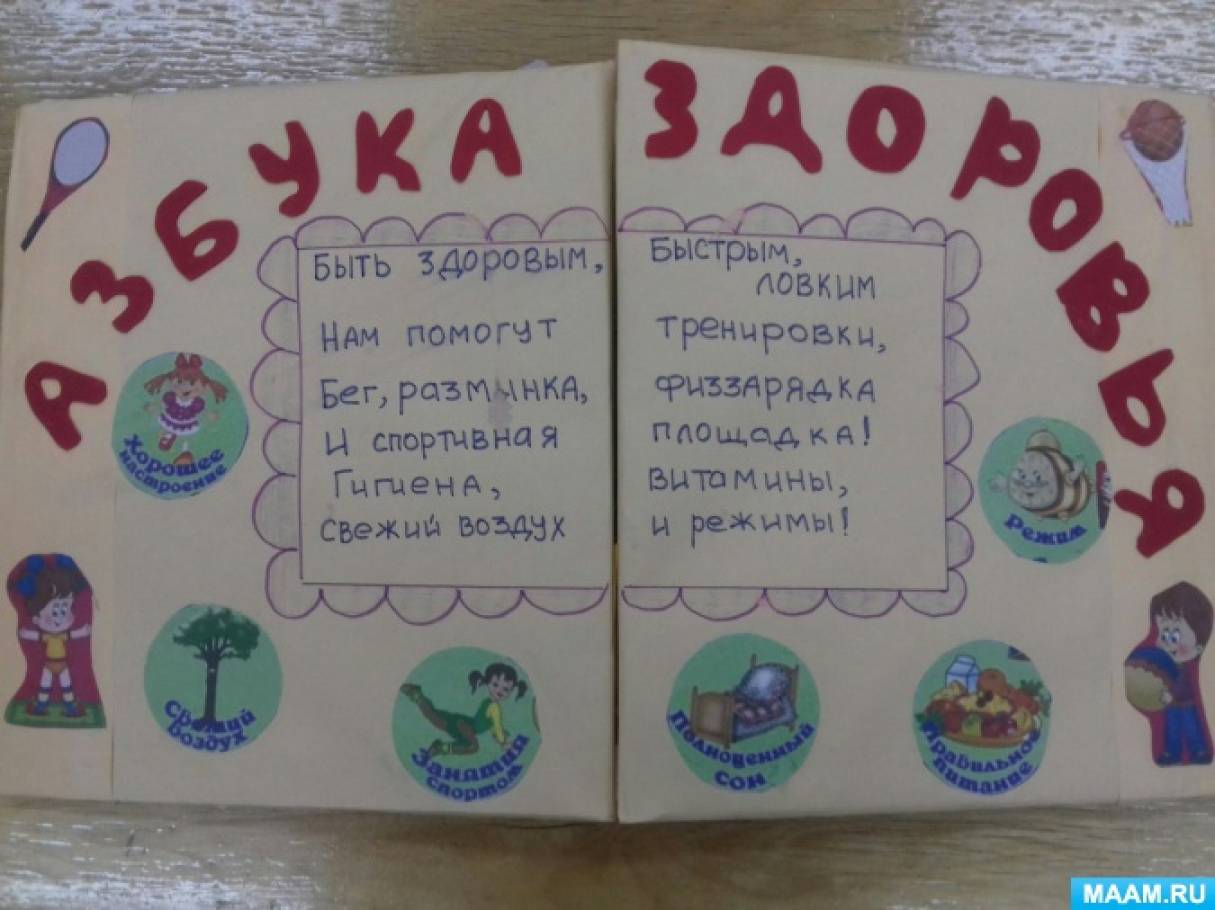 АЗБУКА ЗДОРОВЬЯ
БЫТЬ ЗДОРОВЫМ, БЫСТРЫМ,
ЛОВКИМ
НАМ ПОМОГУТ ТРЕНИРОВКИ,
БЕГ, РАЗМИНКА, ФИЗЗАРЯДКА
И СПОРТИВНАЯ ПЛОЩАДКА!
ГИГИЕНА, ВИТАМИНЫ,
СВЕЖИЙ ВОЗДУХ И РЕЖИМЫ!
Хорошее
настроение
Режим
Свежий
воздух
Занятия
спортом
Полноценный
сон
Правильное
питание
MAAM.RU